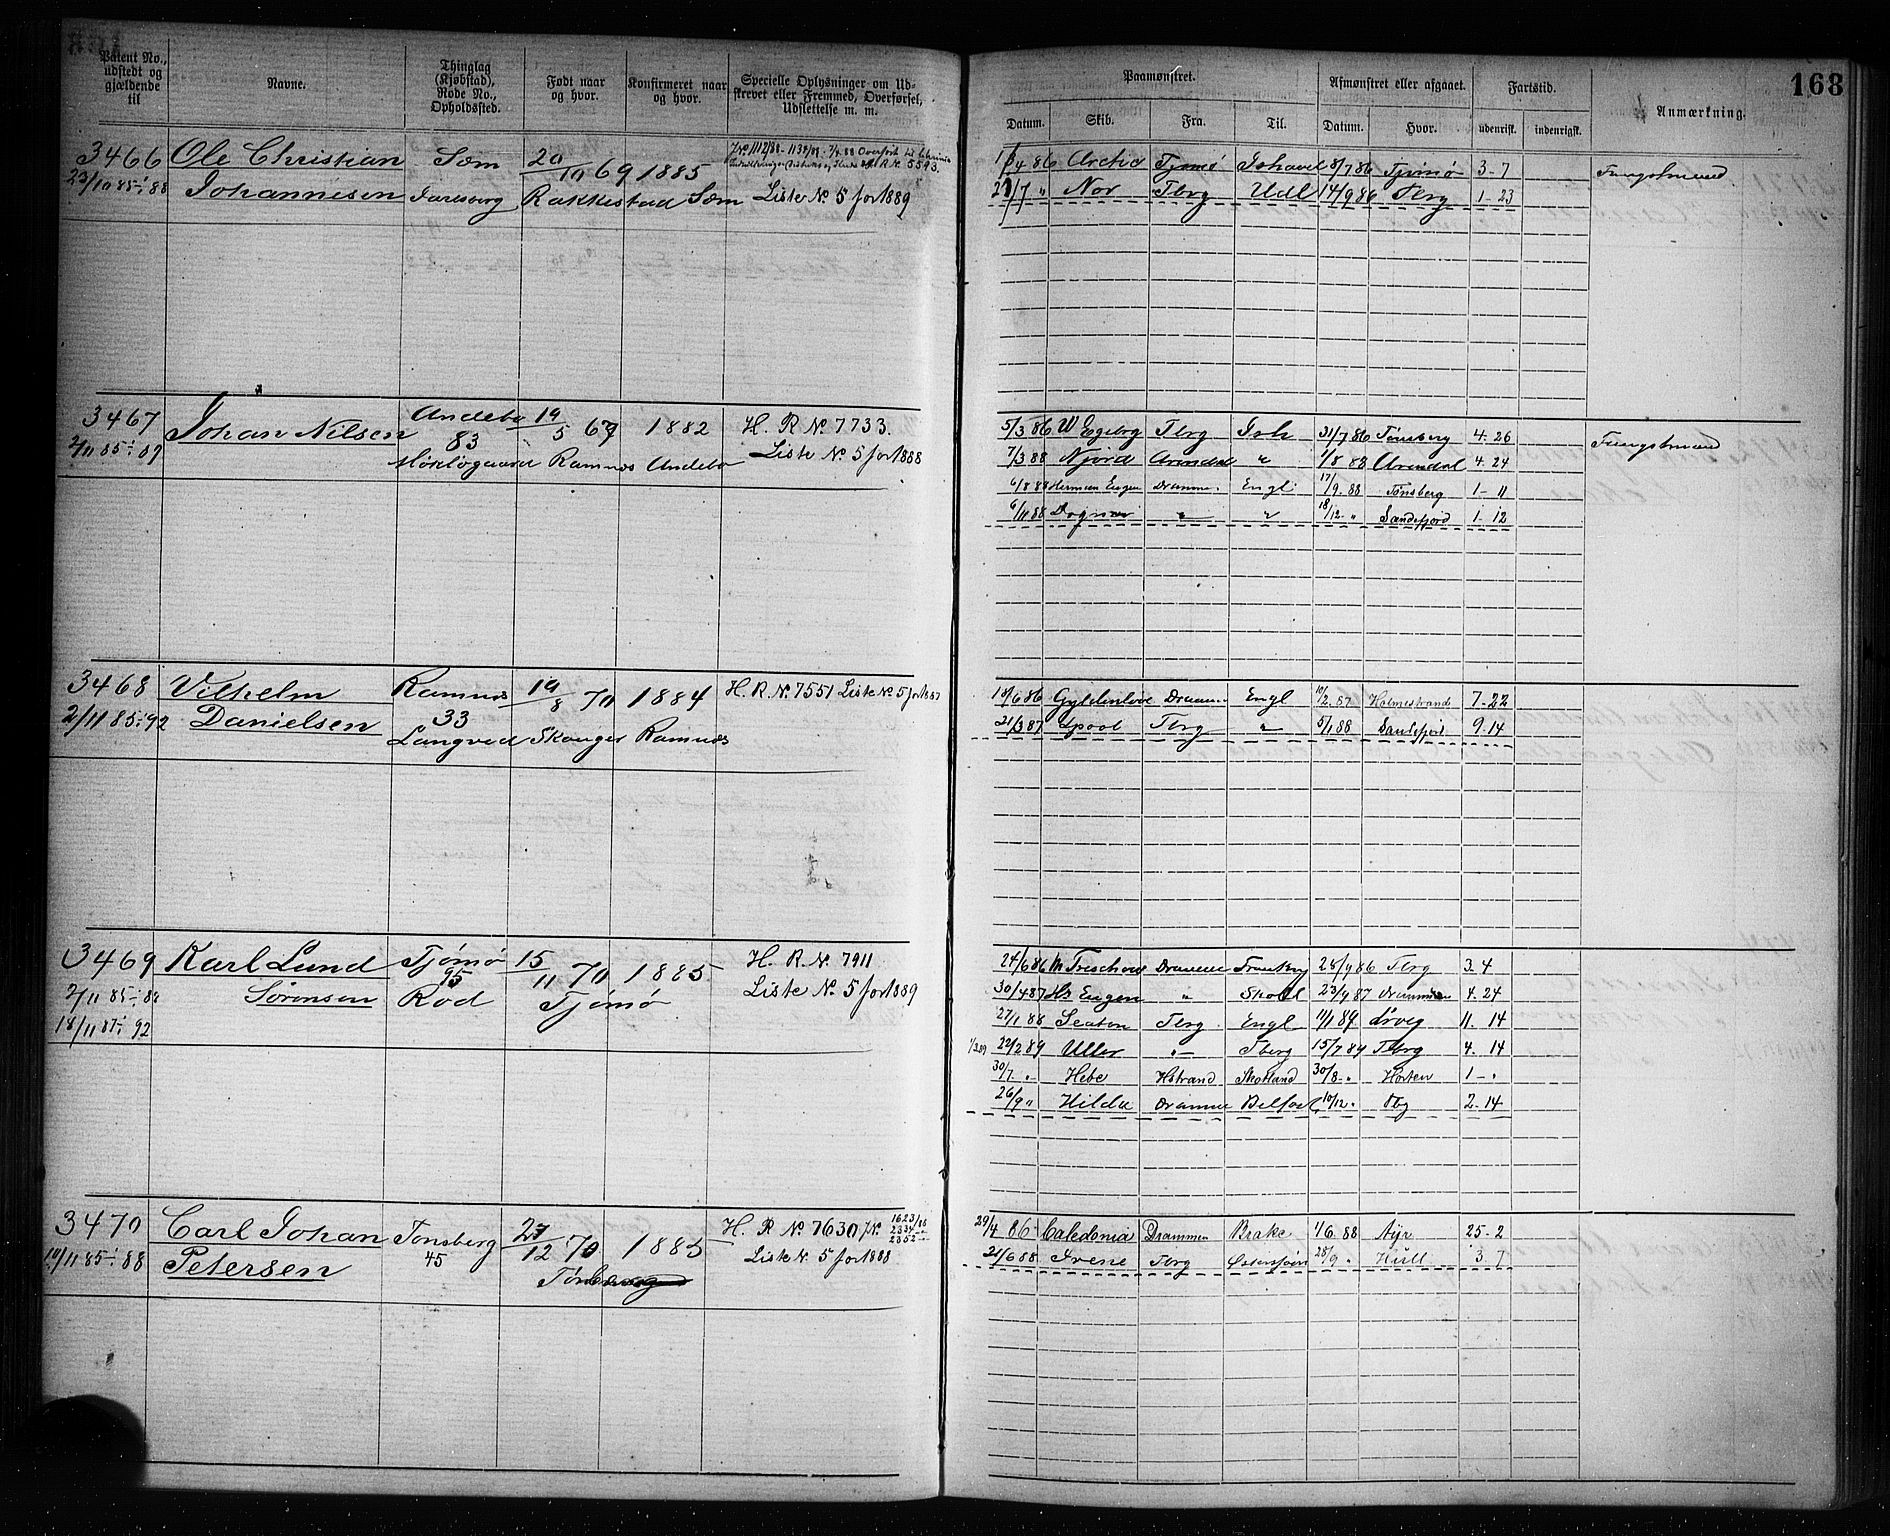 168
Patent No., udstedt og gjældende til
Navne.
Thinglag (Kjøbstad), Rode No., Opholdssted.
Født naar og hvor.
Konfirmeret naar og hvor.
Specielle Oplysninger om Udskrevet eller Fremmed, Overførsel, Udslettelse m. m.
Paamønstret.
Afmønstret eller afgaaet.
Fartstid.
Anmærkning.
Datum. Skib. Fra. Til. Datum. Hvor. udenrigsk. indenrigsk.
3466 Ole Christian Sem 20/10 69 1885
23/10 85-i 88 Johannesen Jarlsberg Rakkestad Sem Liste No. 5 for 1889
4 86 Arctic Tjømø Ishavet 8/7 86 Tjømø 3-7 Fangstmand
/7 " Nor Tbrg Udl 14/9 86 Tbrg 1-23
3467 Johan Nilsen Andebo 19/5 69 1882 H. R. No 7733.
2/11 85-i 89 83 Ramnæs Andebo Liste No. 5 for 1888
5/3 86 Tbrg Ish 31/7 86 Tønsberg 4-26 Fangstmand
7/3 88 Njord Arendal " 1/8 88 Arendal 4-24
6/8 88 Herman Eugen Dramm. Engl. 17/9 88 Tønsberg 1-11
6/11 88 " " 18/12 " Sandefjord 1-12
3468 Vilhelm Ramnæs 19/8 70 1884 H. R. No. 7551 Liste No 5 for 1887
2/11 85-i 92 Danielsen 33
Langved Skouger Ramnæs
18/6 86 Gyldenløve Dramm Engl 10/2 87 Holmestrand 7-22
21/3 87 Spool Tbrg " 5/1 88 Sandefjord 9-14
3469 Karl Lund Tjømø 15/11 70 1885 H. R. No. 7911
2/11 85-i Sørensen 95 Rød Tjømø Liste No. 5 for 1889
18/11 87-i 92
24/6 86 Treschow Dramm 28/9 86 Tbrg 3-4
30/4 87 Hs Eugen " Skotl 23/9 87 Drammen 4-24
27/1 88 Seaton Tbrg. Engl 11/1 89 11-14
22/2 89 Uller " Tberg 15/7 89 Tbrg 4-14
30/7 " Hebe Hstrand Skotland 30/8 " Horten 1-"
26/9 " Hilda Dramm Belfast 10/12 " Tbg 2-14
3470 Carl Johan Tønsberg 27/12 70 1885 H. R. No. 7630 J No.
10/11 85-i 88 Petersen 45 Tønsberg Liste No. 5 for 1888
29/4 86 Caledonia Drammen Brake 1/6 88 Ayr 25-2
21/6 88 Irene Tbrg Østersjøen 28/9 " Hull 3-7